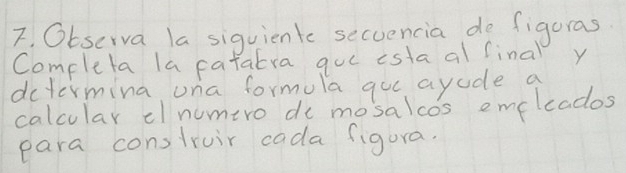 7. Observa la siguiente secuencia de figuras.
Completa la patabra que esta al final y
determina una formula que ayude a
calcular el numero de mosaicos empleados
para construir cada figura.